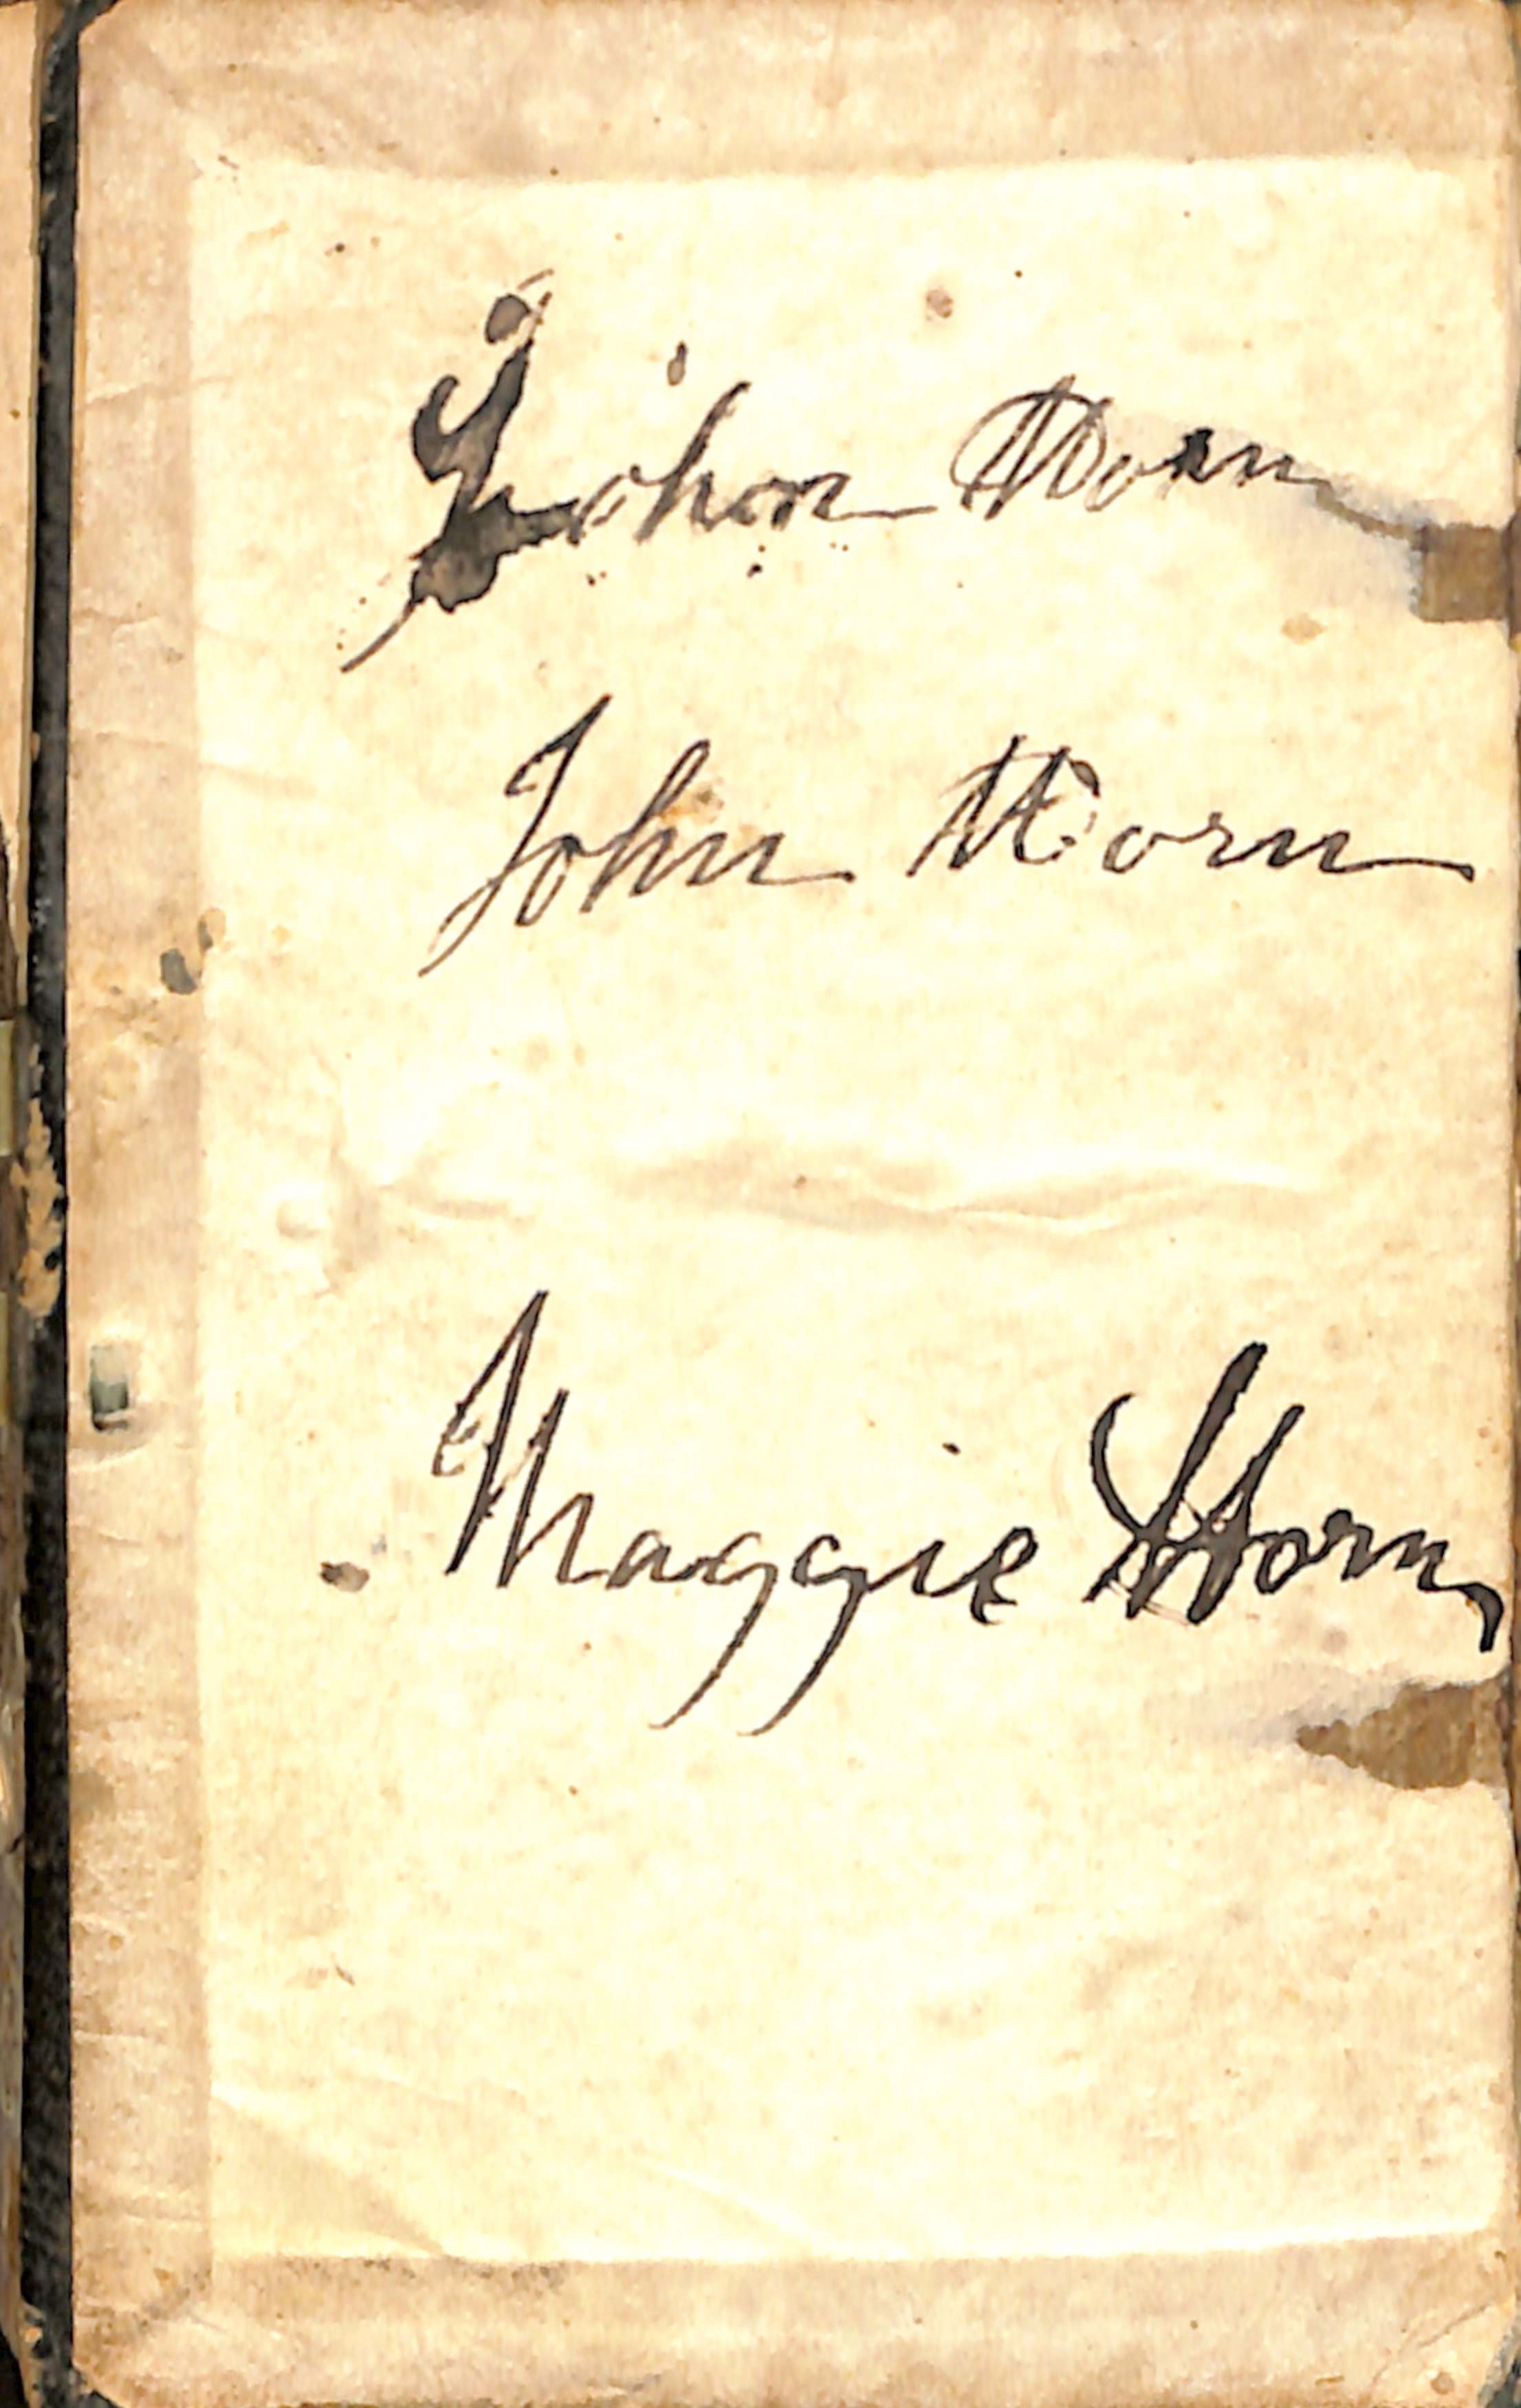 John Horn
John Horn
Maggie Horn